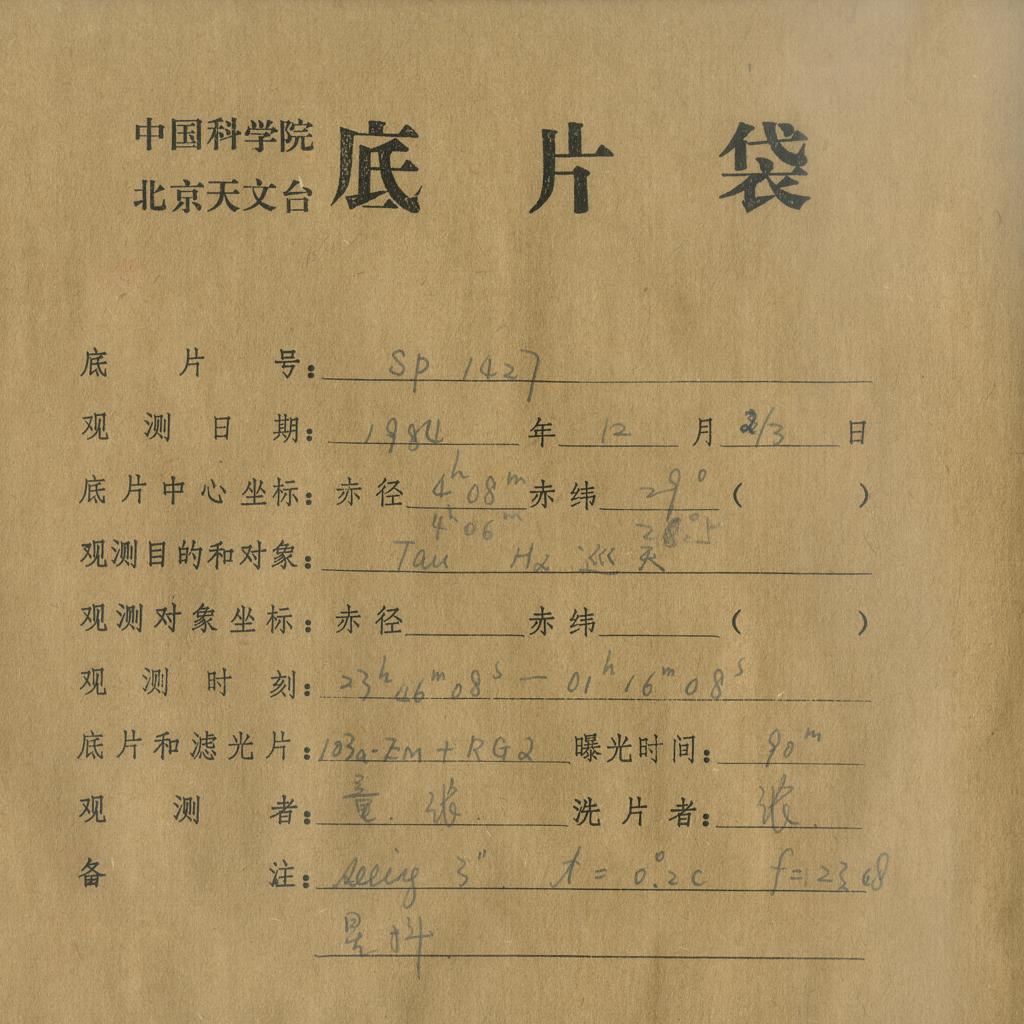 中国科学院
北京天文台
底片袋
底片号: Sp 1427
观测日期: 1984 年 12 月 2/3 日
底片中心坐标: 赤径 4h 08m 赤纬 29° ( )
4h 06m 28.°5
观测目的和对象: Tau Hα 巡天
观测对象坐标: 赤径 赤纬 ( )
观测时刻: 23h 46m 08s — 01h 16m 08s
底片和滤光片: 103a-Em + RG2 曝光时间: 90m
观测者: 童. 张. 洗片者: 张.
备注: seeing 3" t = 0.°2c f = 23.68
星斜